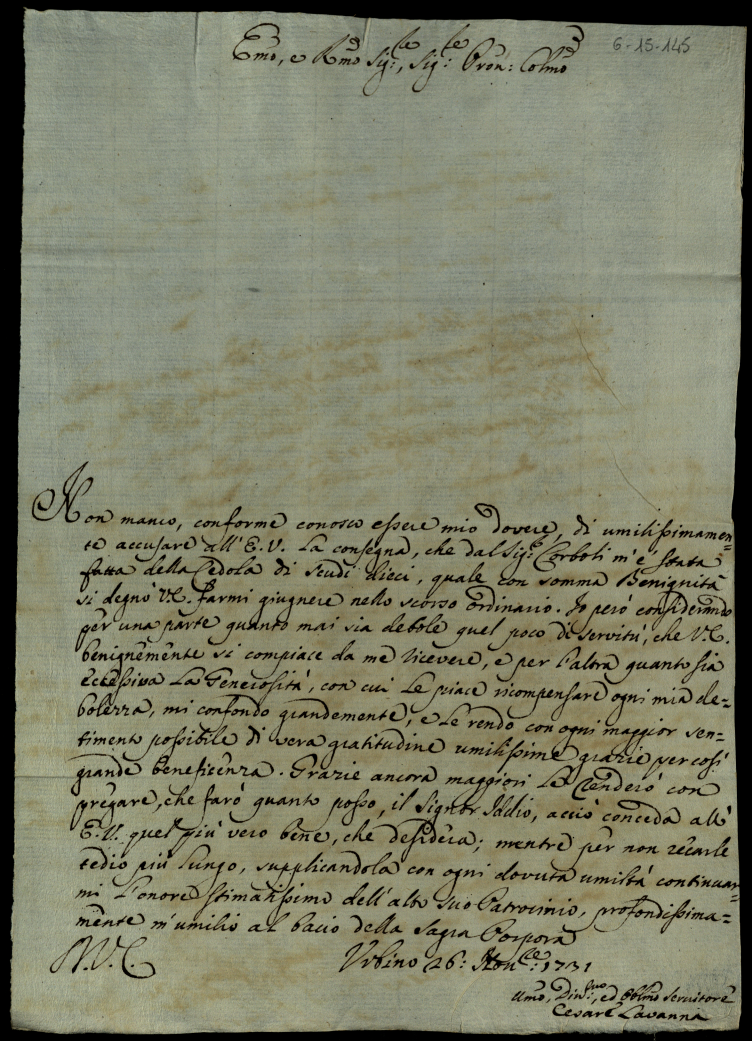 6-15-145
Emo, e Rmo Sig:re, Sig:re Pron: Colmo
Non manco, conforme conosco essere mio dovere, di umilissimamen=
te accusare all'E.V. la consegna, che dal Sig:r Corboli m'è stata
fatta della Cedola di scudi dieci, quale con somma Benignità
si degnò V.E. farmi giugnere nello scorso ordinario. Io però considerando
per una parte quanto mai sia debole quel poco di servitù, che V.E.
benignemente si compiace da me ricevere, e per l'altra quanto sia
eccessiva la Generosità, con cui le piace ricompensare ogni mia de=
bolezza, mi confondo grandemente, e le rendo con ogni maggior sen=
timento possibile di vera gratitudine umilissime grazie per così
grande beneficenza. Grazie ancora maggiori le renderò con
pregare, che farò quanto posso, il Signor Iddio, acciò conceda all'
E.V. quel più vero bene, che desidera; mentre per non recarle
tedio più lungo, supplicandola con ogni dovuta umiltà continuar=
mi l'onore stimatissimo dell'alto suo Patrocinio, profondissima=
mente m'umilio al bacio della Sagra Porpora
D.V.E. Urbino 26: Nov:re 1731
Umo, Divmo, ed Oblmo Servitore
Cesare Lavanna